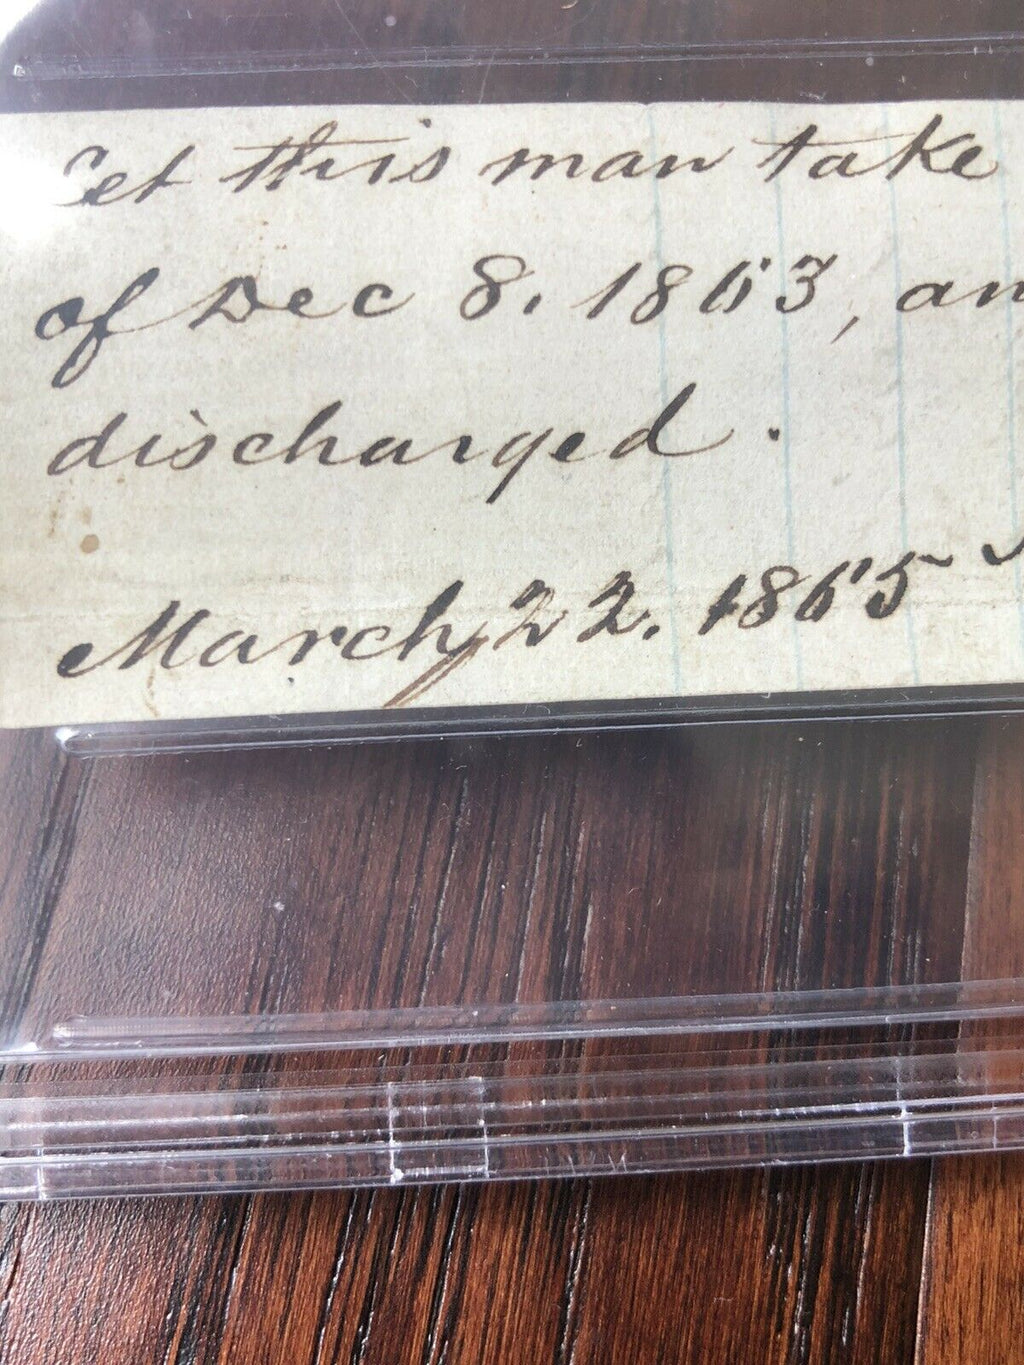 Let this man take
of Dec 8. 1863, an
discharged.
March 22. 1865